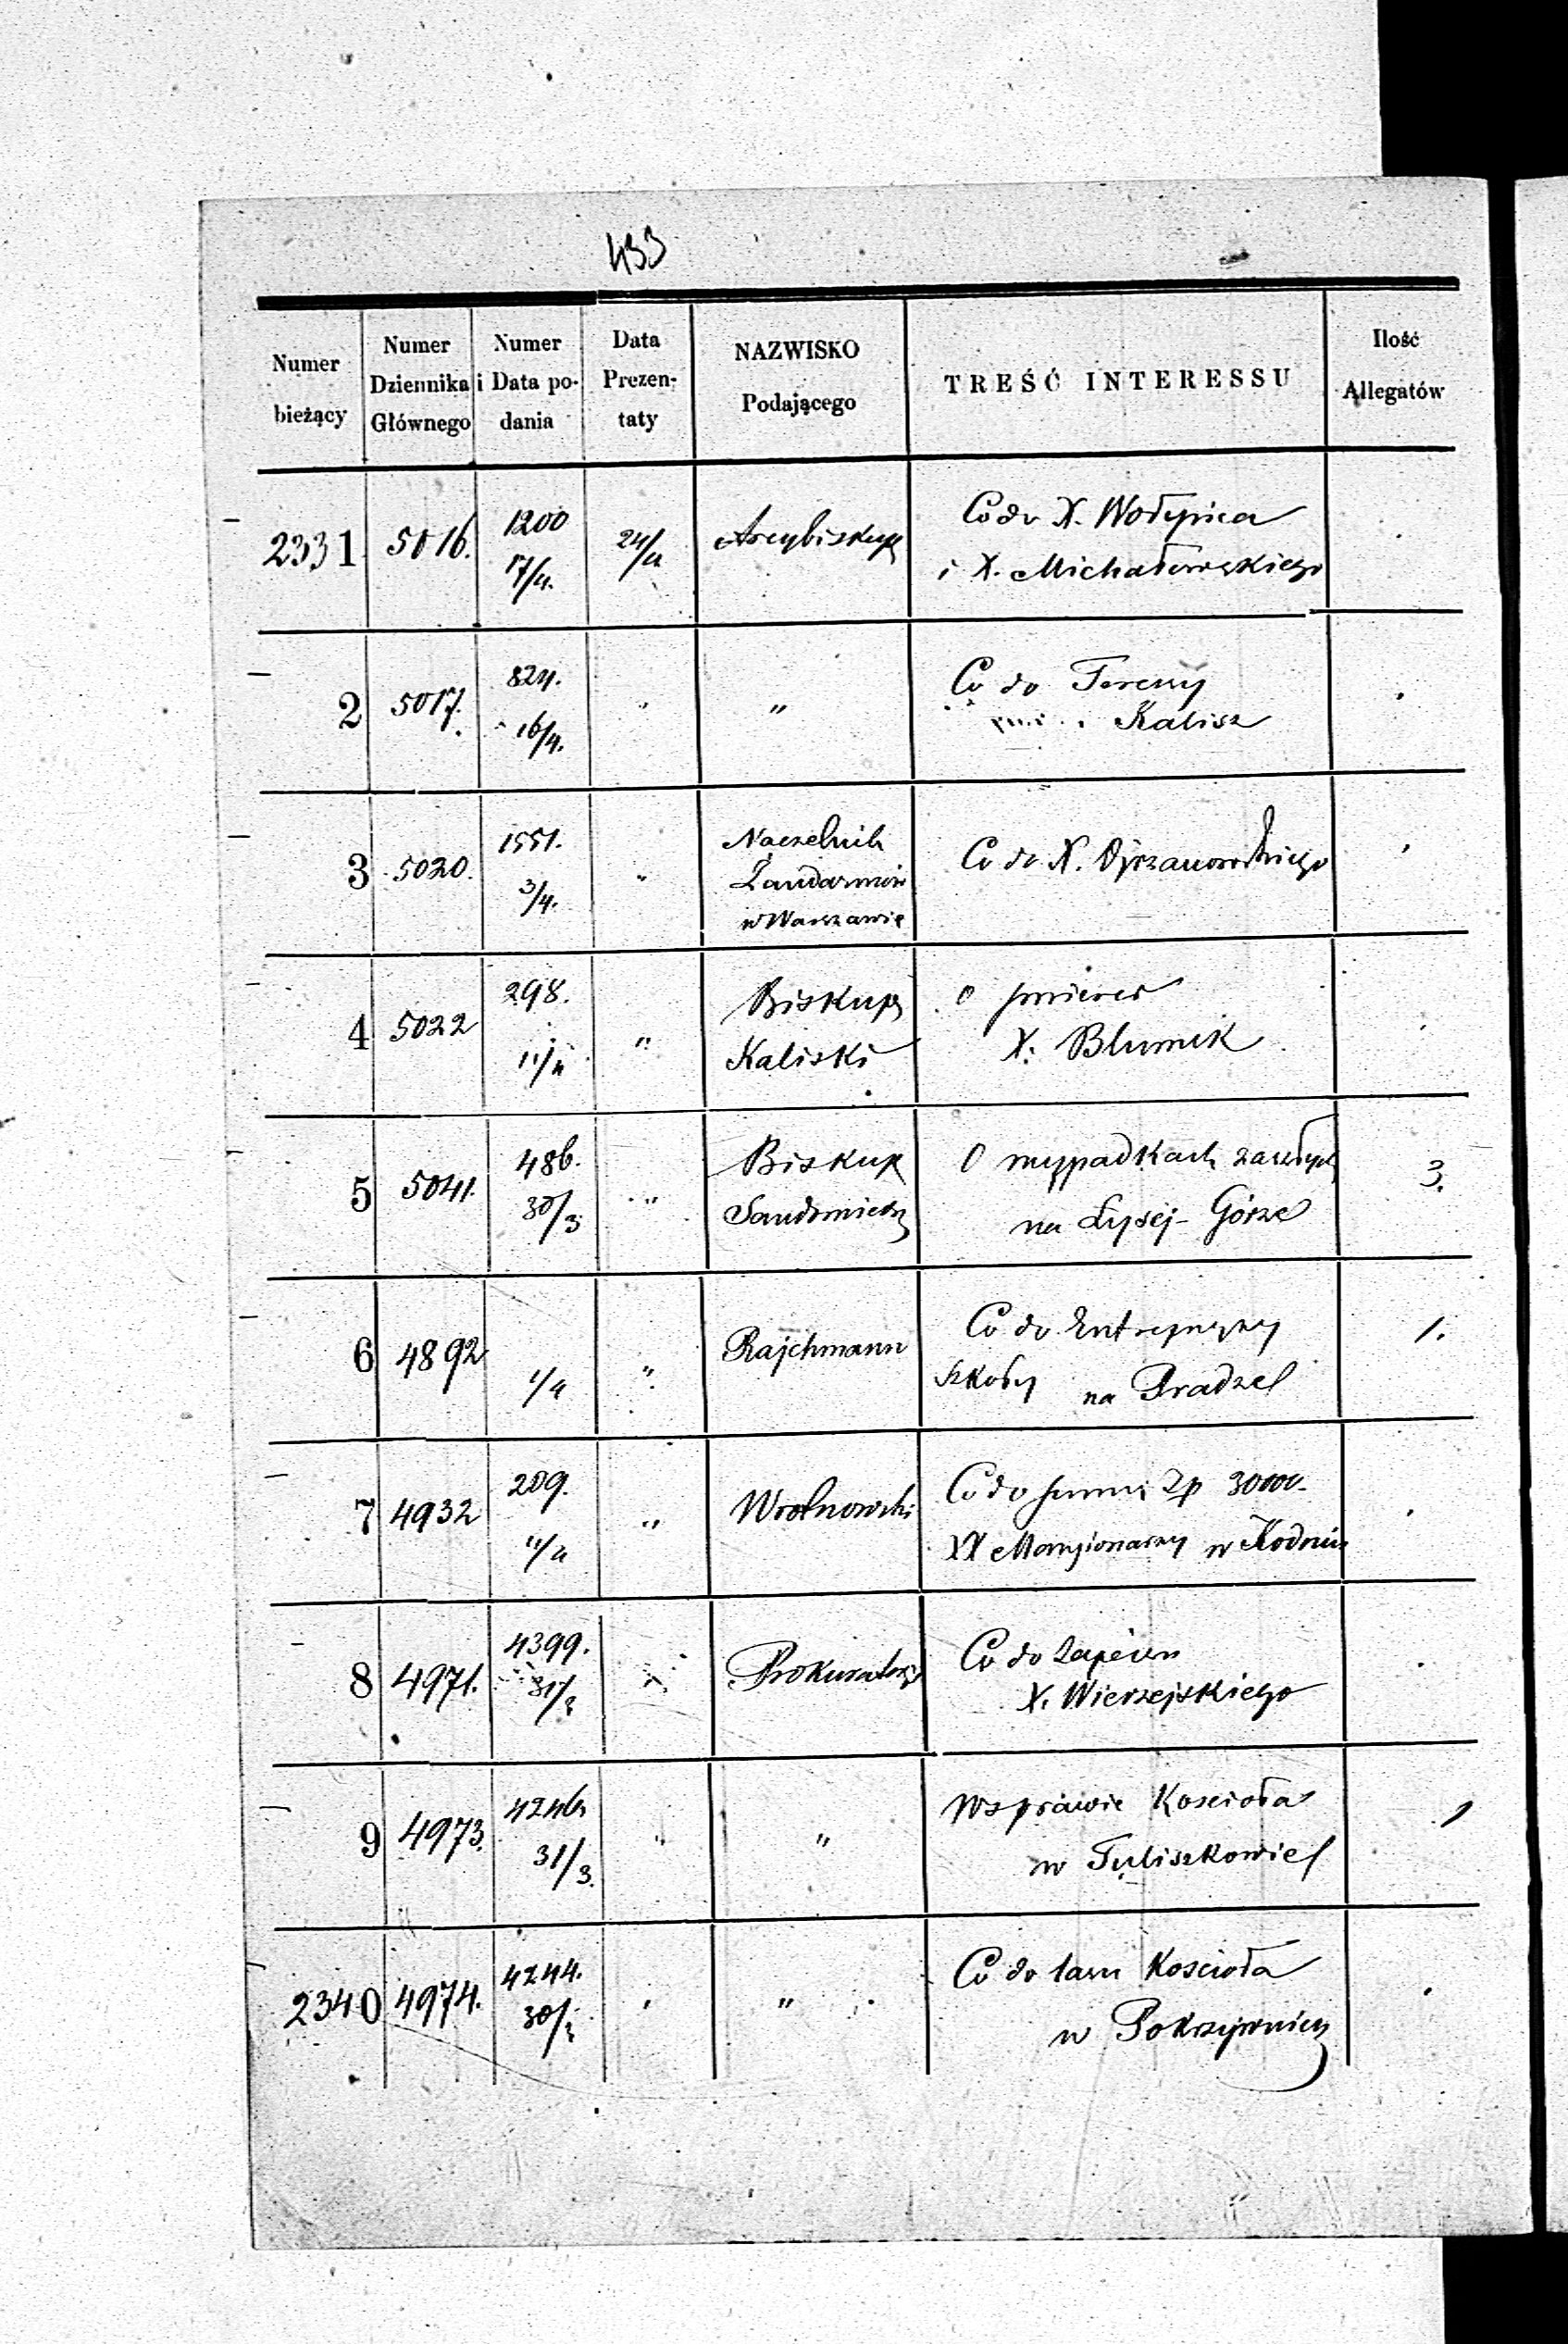 433
Numer bieżący
Numer Dziennika Głównego
Numer i Data podania
Data Prezentaty
NAZWISKO Podającego
TREŚĆ INTERESSU
Ilość Allegatów
2331 5016. 1200 17/4. 24/4 Arcybiskup Co do X. Wołyńca
i X. Michałowskiego
2 5017. 824. 16/4. " " Co do
Kalisz
3 5020. 1551. 3/4. " Naczelnik Co do X.
Żandarmów
w Warszawie
4 5022 298. 11/4 " Biskup O
Kaliski X. Blumik
5 5041. 486. 30/3 " Biskup O wypadkach zaszłych 3.
Sandomierz na Łysej-Górze
6 4892 1/4 " Rajchmann Co do Entrepryzy 1.
szkoły na Pradze
7 4932 209. 11/4 " Wrotnowski Co do summy Zp 30000.
XX Mansjonarzy w Kodniu
8 4971. 4399. 31/3 " Prokuratorja Co do
X. Wierzejskiego
9 4973. 4246 31/3. " " W sprawie Kościoła 1
w Tuliszkowie
2340 4974. 4244. 30/3 " " Co do lasu Kościoła
w Pokrzywnicy